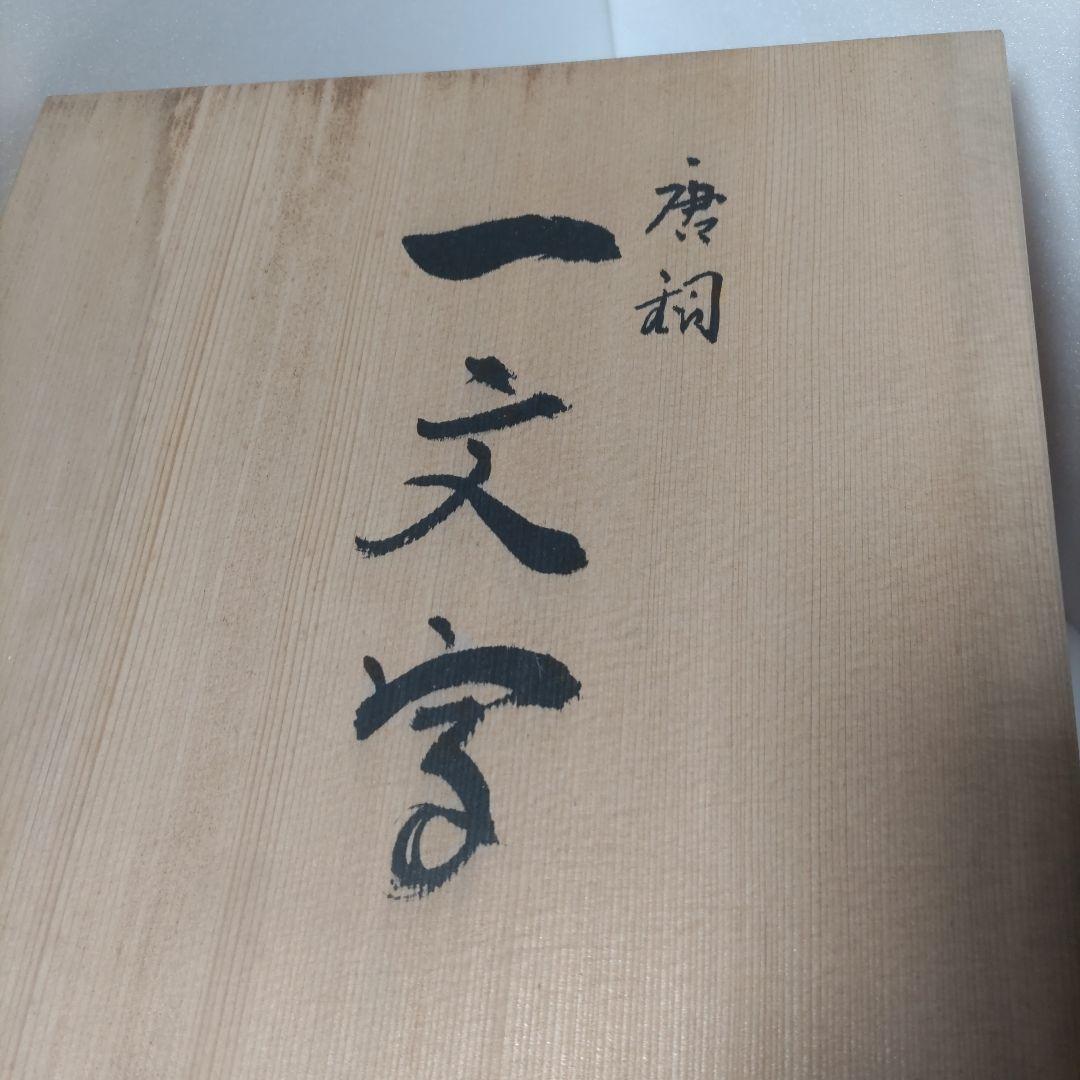 唐銅
一文字